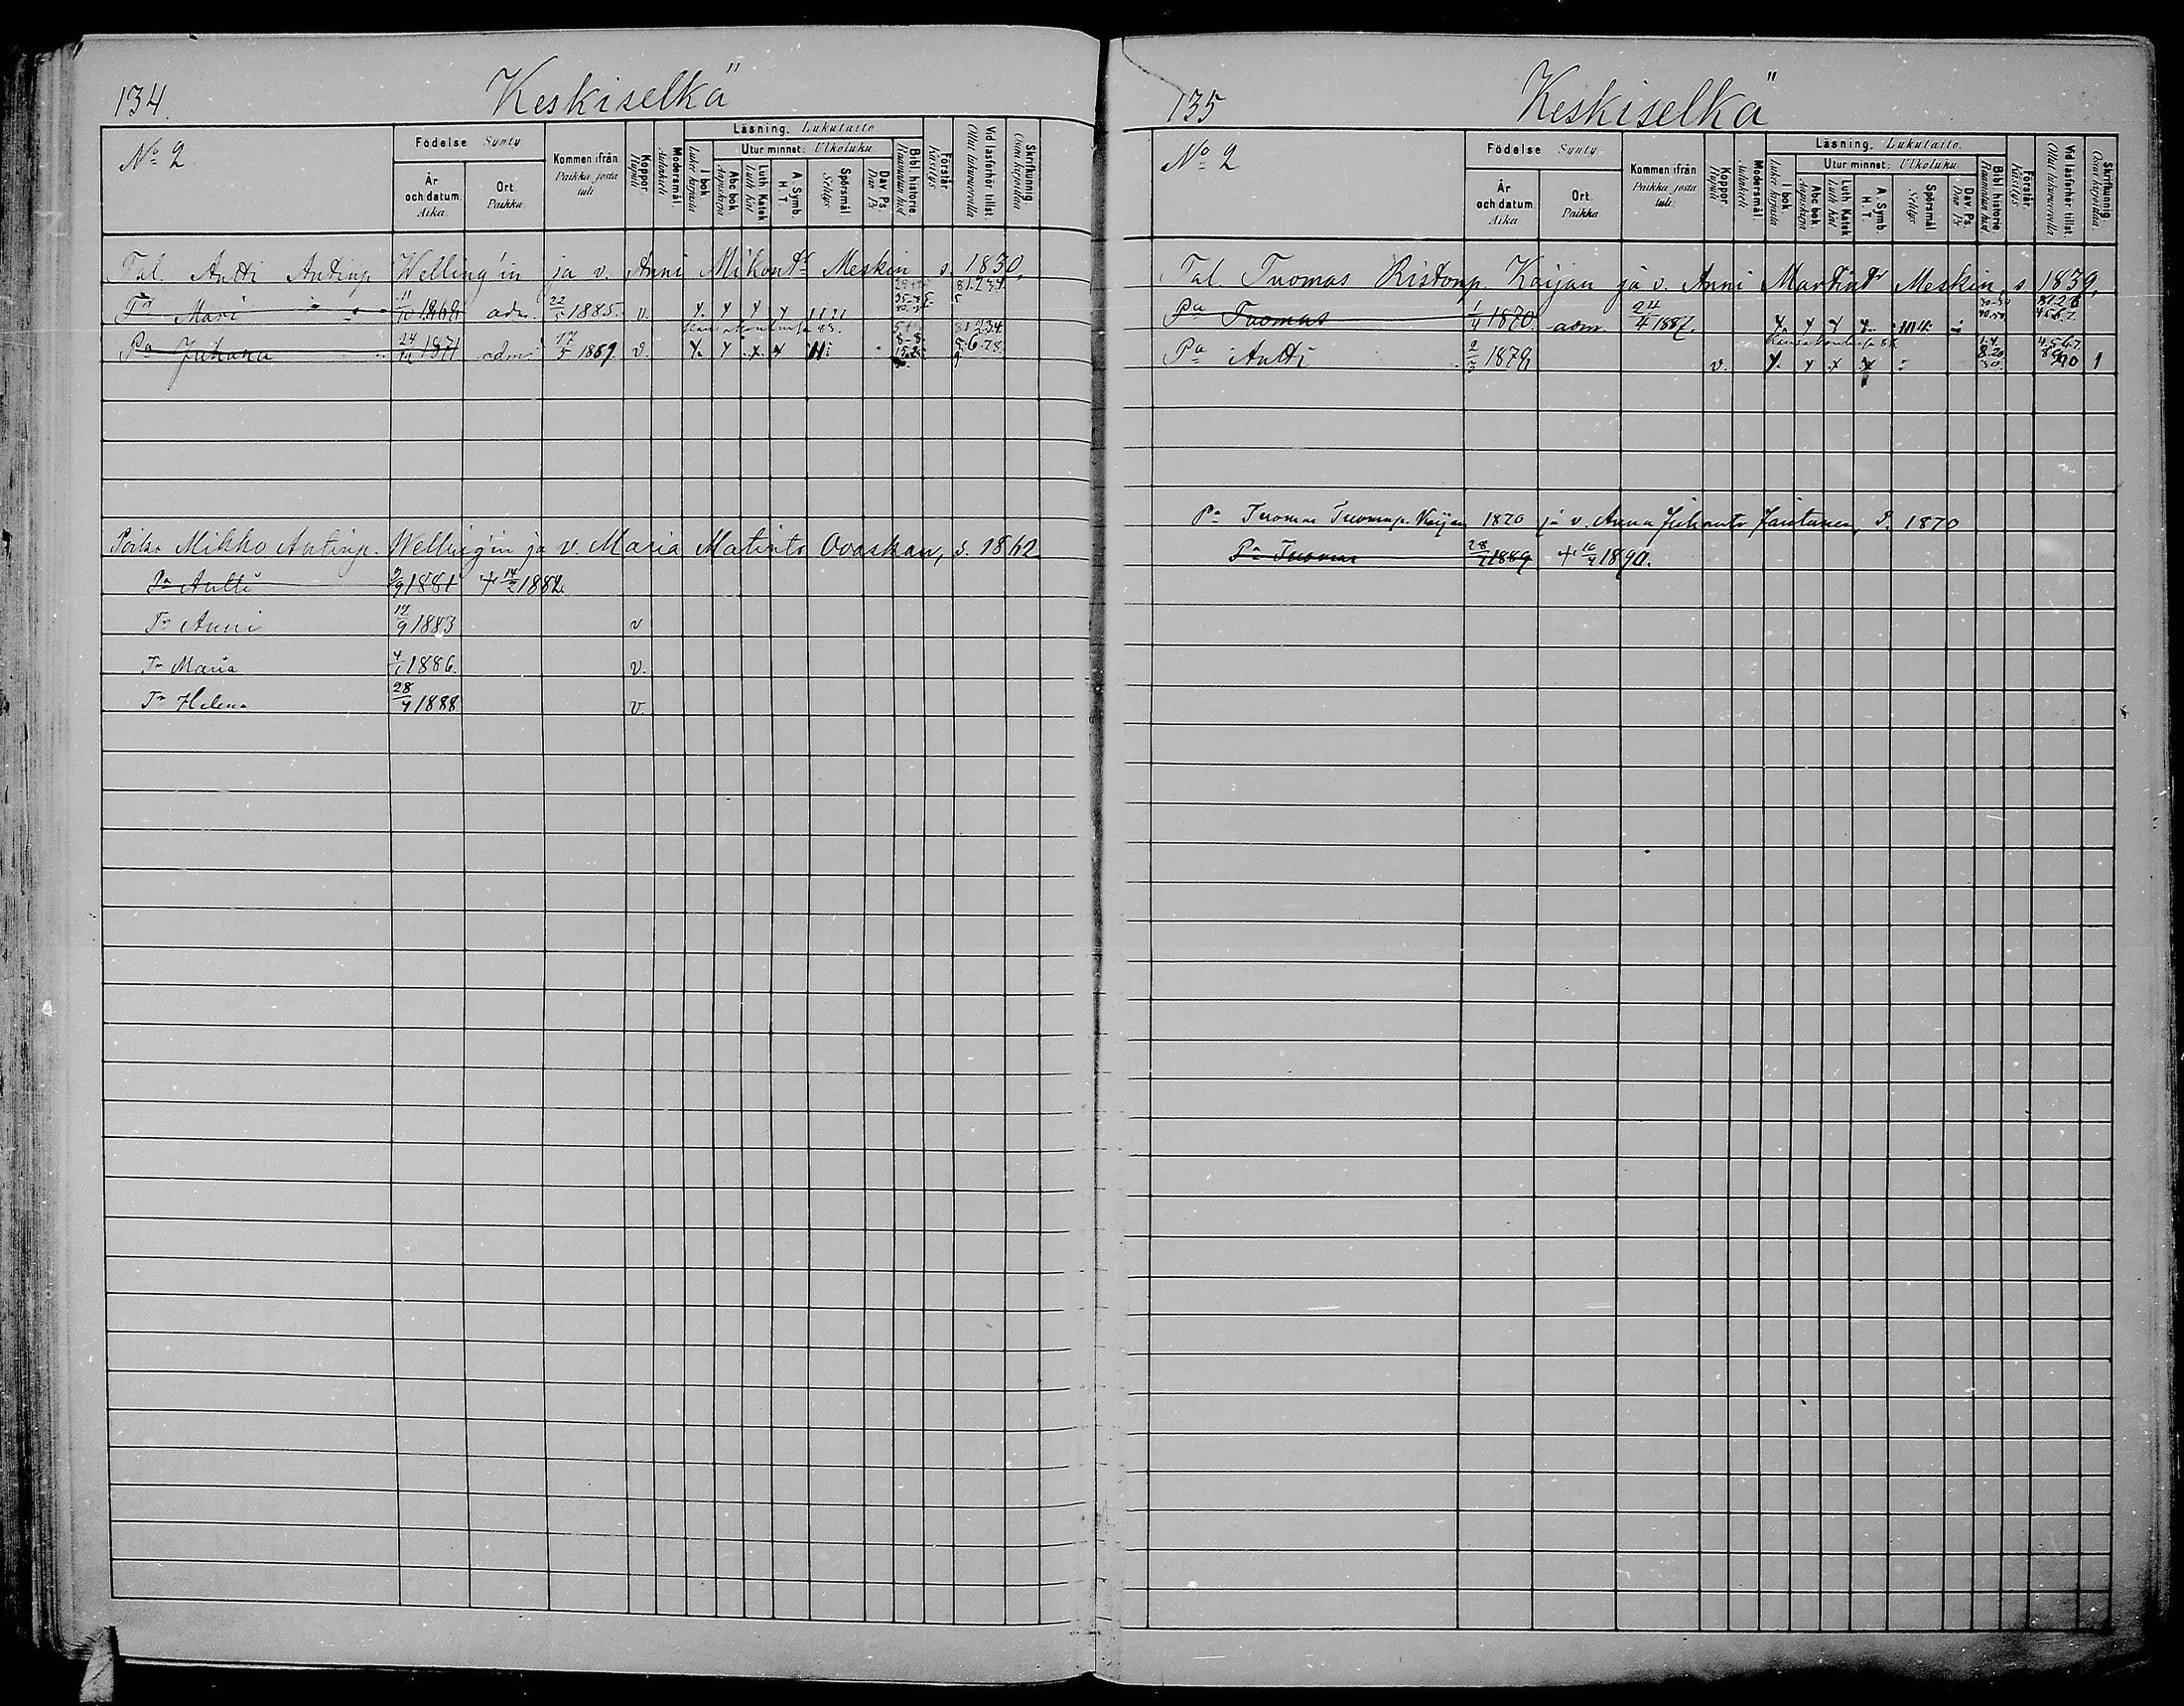 134.
Keskiselkä
No 2
Födelse Synty
År och datum. Aika
Ort. Paikka
Kommen ifrån Paikka josta tuli
Koppor. Rupuli
Modersmål. Äidinkieli
Läsning. Lukutaito
I bok. Lukee kirjasta
Utur minnet: Ulkoluku
Abc bok. Aapiskirja
Luth. Katek. Luth. kat.
A. Symb. H. T.
Spörsmål Selitys
Dav. Ps. Dav. Ps.
Bibl. historie. Raamatun hist.
Förstår. Käsitys
Vid läsförhör tillst. Ollut lukuvuorolla
Skrifkunnig. Osaa kirjoittaa
Tal. Antti Antinp. Welling'in ja v. Anni Mikontr Meskin s. 1830.
Tr Mari 1868 adm. 22/5 1885. v.
Pa Juhana 1871 adm. 1889. v.
Poika Mikko Antinp. Welling'in ja v. Maria Matintr Ovaskan, s. 1862
Pa Antti 2/9 1881 + 14/2 1882.
Tr Anni 12/9 1883 v
Tr Maria 4/1 1886. v.
Tr Helena 28/9 1888 v.
135
Keskiselkä
No 2
Födelse Synty
År och datum Aika
Ort. Paikka
Kommen ifrån Paikka josta tuli
Koppor. Rupuli
Modersmål. Äidinkieli
Läsning. Lukutaito.
I bok. Lukee kirjasta
Utur minnet: Ulkoluku
Abc bok. Aapiskirja
Luth. Katek. Luth. kat.
A. Symb. H. T.
Spörsmål Selitys
Dav. Ps. Dav. Ps.
Bibl. historie. Raamatun hist.
Förstår. Käsitys
Vid läsförhör tillst. Ollut lukuvuorolla
Skrifkunnig. Osaa kirjoittaa
Tal. Tuomas Ristonp. Kaijan ja v. Anni Martintr Meskin, s 1839.
Pa Tuomas 1/4 1870 adm. 24/4 1887.
Pa Antti 2/3 1879 v.
Pa Tuomas Tuomasp. Kaijan 1870 ja v. Anna Juhontr Jantunen, S. 1870
Pa Tuomas 1889 + 16/4 1890.